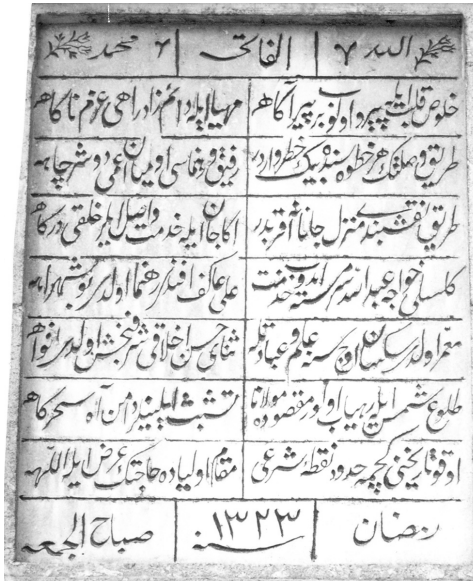 الله ٧ الفاتحه محمد ٢
خلوص قلبله پيرو اولوب بر پير آگاهه مهيا ايله دائم زاد راهى عزم ناگاهه
طريق وهملك هر خطوه سنده بيك خطر واردر رفيق
طريق نقشبندى منزل جانانه اقربدر اكا جان ايله خدمت واصل ايلر خلقى درگاهه
خواجه عبدالله خدمت على عاكف افندى رهنما اولدى بو شهراهه
معمر اولدى سكسان علم و عبادتله ثناى حسن اخلاقى شرفبخش اولدى افواهه
طلوع شمس ايله اولور مقصوده مولانا تشبث ايلينلر دامن آه سحرگاهه
اوقو تاريخنى گچمه حدود نقطۀ شرعى مقام اولياده حاجتك عرض ايله اللهه
رمضان سنه ١٣٢٣ صباح الجمعه